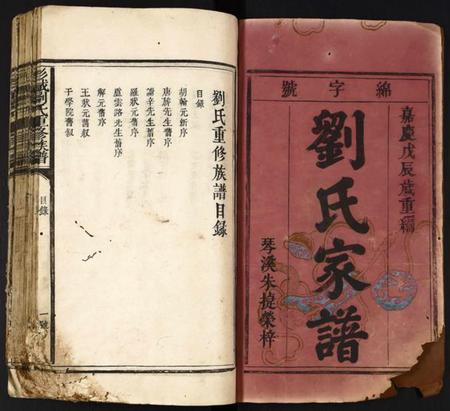 綿字號
嘉慶戊辰歲重鐫
劉氏家譜
琴溪朱挺榮梓
劉氏重修族譜目錄
目錄
胡翰元新序
唐諱先生舊序
謙辛先生舊序
羅狀元舊序
盧雲路先生舊序
解元舊序
王狀元舊叙
于學院舊叙
彭城劉氏重修族譜
目錄
一號